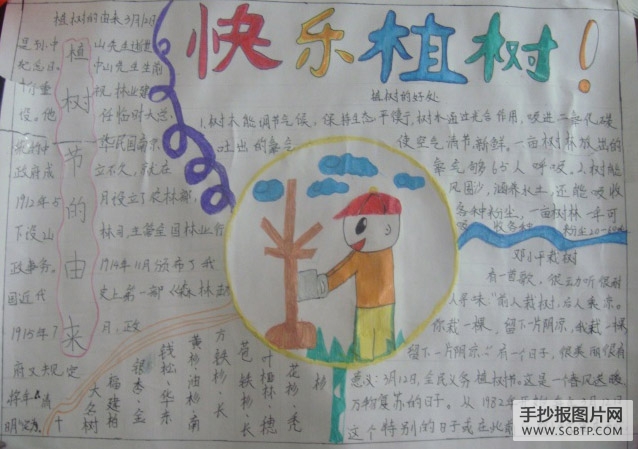 快乐植树！
植树节的由来
植树的由来3月12日
是孙中山先生逝世
纪念日，中山先生生前
十分重视林业建
设。他任临时大总
华民国南京
政府成立不久，就在
1912年5月设立了农林部，
下设山林司，主管全国林业行
政事务。1914年11月颁布了我
国近代史上第一部《森林法》
1915年7月，政
府又规定
将每年清
明定为
植树的好处
1、树木能调节气候，保持生态平衡，树木通过光合作用，吸进二氧化碳
吐出的氧气，使空气清洁新鲜，一亩树林放出的
氧气够65人呼吸。2、树能
风固沙，涵养水土，还能吸收
各种粉尘，一亩树林一年可
吸收各种粉尘20-60
邓小平栽树
有一首歌，很动听很耐
人寻味“前人栽树，后人乘凉。
你栽一棵，留下一片阴凉，我栽一棵
留下一片阴凉”有一个日子，很美丽很有
意义：3月12日，全民义务植树节，这是一个春风送暖，
万物复苏的日子。从1982年
这个特别的日子或在此前
大名树
福建柏
银杏·金
钱松·华东
黄杉·油杉·南
方铁杉·长
苞铁杉·长
叶榧树·穗
花杉·秃
杉
手抄报图片网
WWW.SCBTP.COM